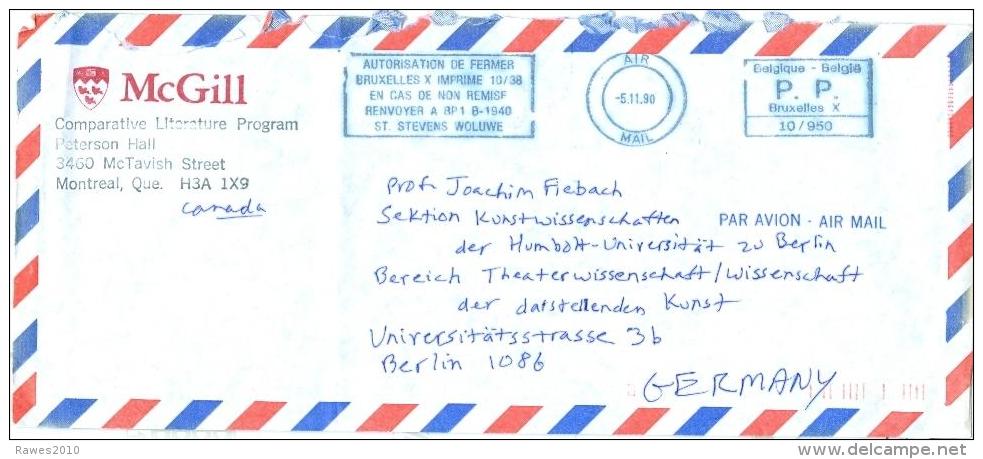 McGill
Comparative Literature Program
Peterson Hall
3460 McTavish Street
Montreal, Que. H3A 1X9
Canada
AUTORISATION DE FERMER
BRUXELLES X IMPRIME 10/38
EN CAS DE NON REMISE
RENVOYER A BP1 B-1940
ST. STEVENS WOLUWE
AIR
-5.11.90
MAIL
Belgique - België
P. P.
Bruxelles X
10/950
Prof. Joachim Fiebach
Sektion Kunstwissenschaften
PAR AVION - AIR MAIL
der Humbolt-Universität zu Berlin
Bereich Theaterwissenschaft/Wissenschaft
der darstellenden Kunst
Universitätsstrasse 3b
Berlin 1086
GERMANY
Rawes2010
delcampe.net